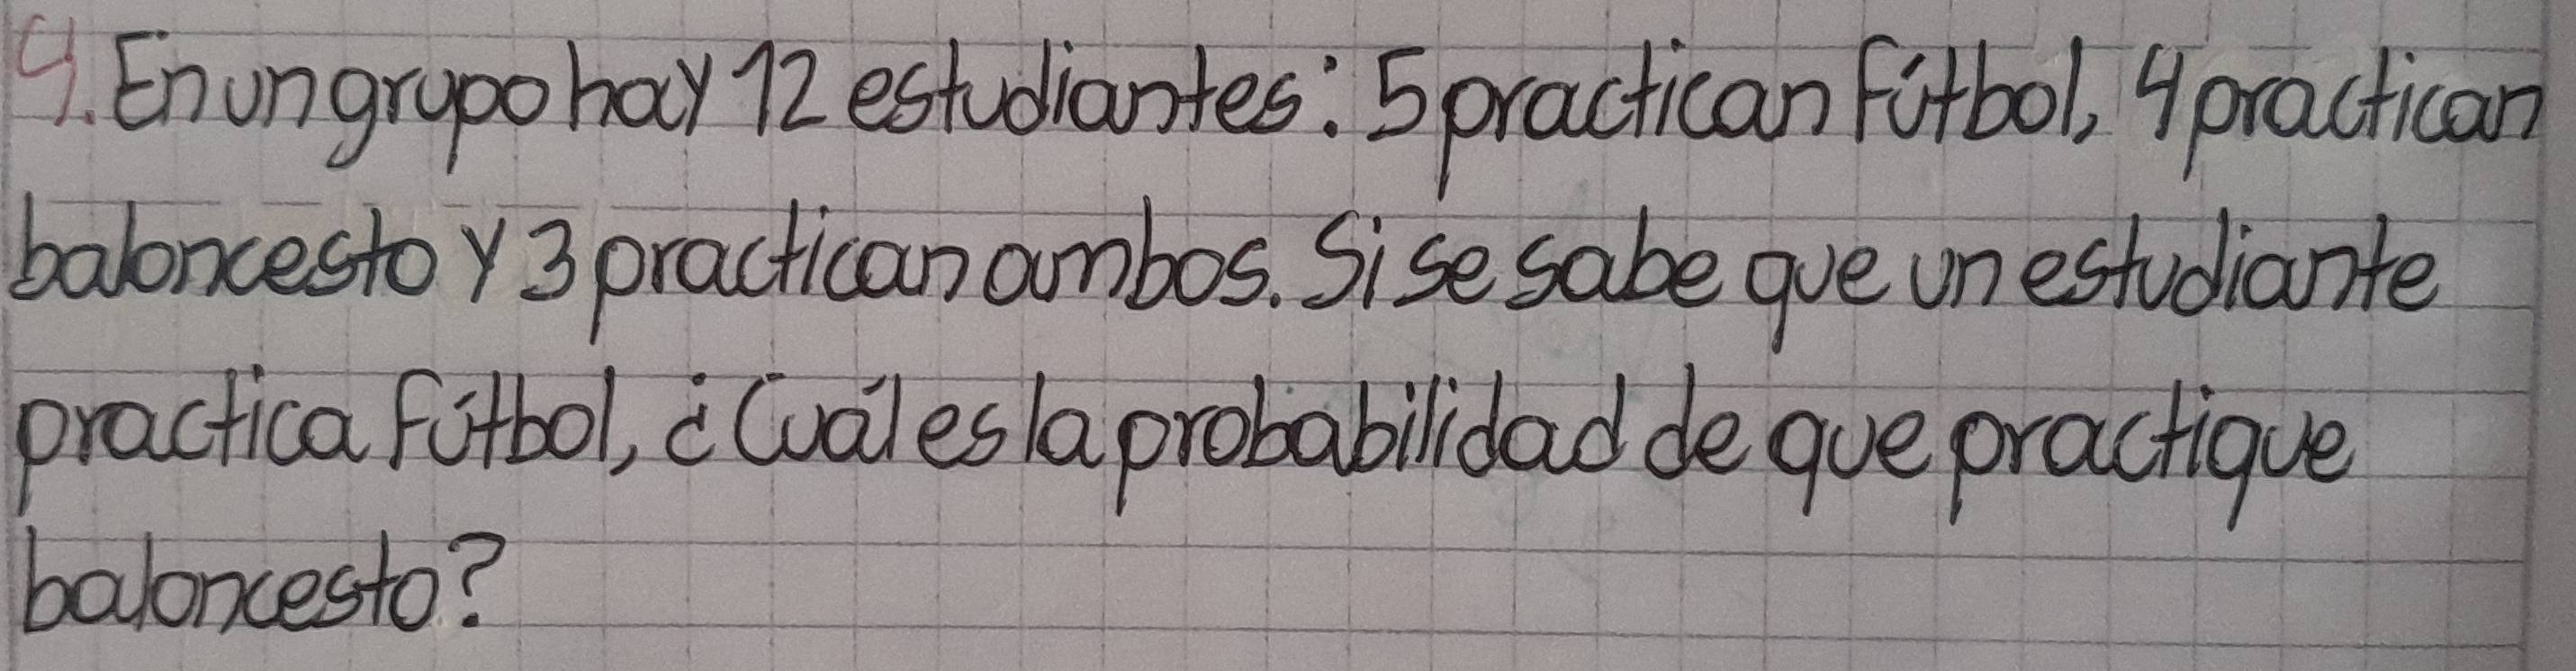 4. En un grupo hay 12 estudiantes: 5 practican fútbol, 4 practican
baloncesto y 3 practican ambos. Si se sabe que un estudiante
practica fútbol, ¿Cuál es la probabilidad de que practique
baloncesto?